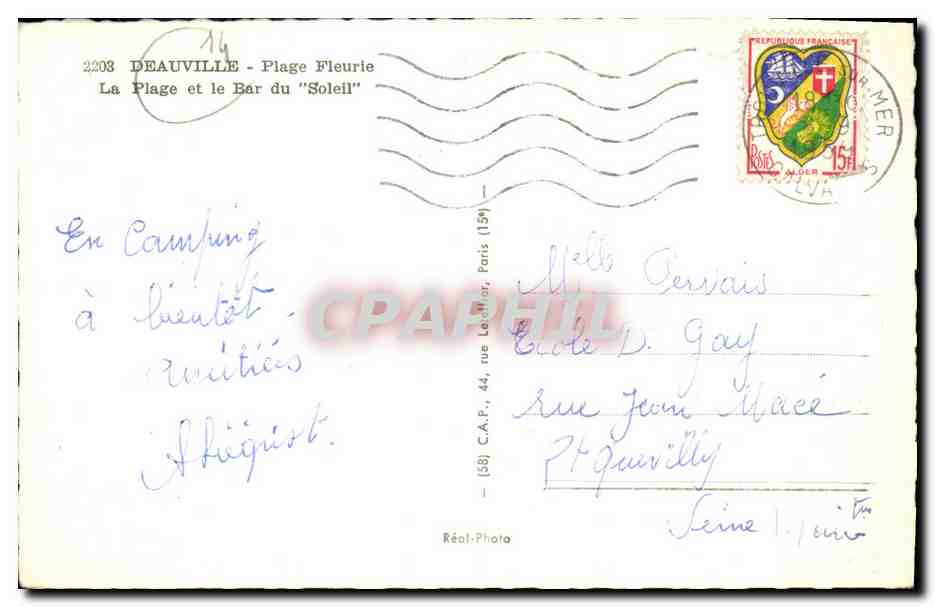 14
2203 DEAUVILLE - Plage Fleurie
La Plage et le Bar du "Soleil"
REPUBLIQUE FRANÇAISE
POSTES 15F
ALGER
SUR-MER
CALVADOS
En Camping
à bientôt.
amitiés
CPAPHIL
(58) C.A.P., 44, rue Letellier, Paris (15e)
Melle Gervais
Ecole D. Gay
rue Jean Macé
Pt Quevilly
Seine Maritime
Réal-Photo